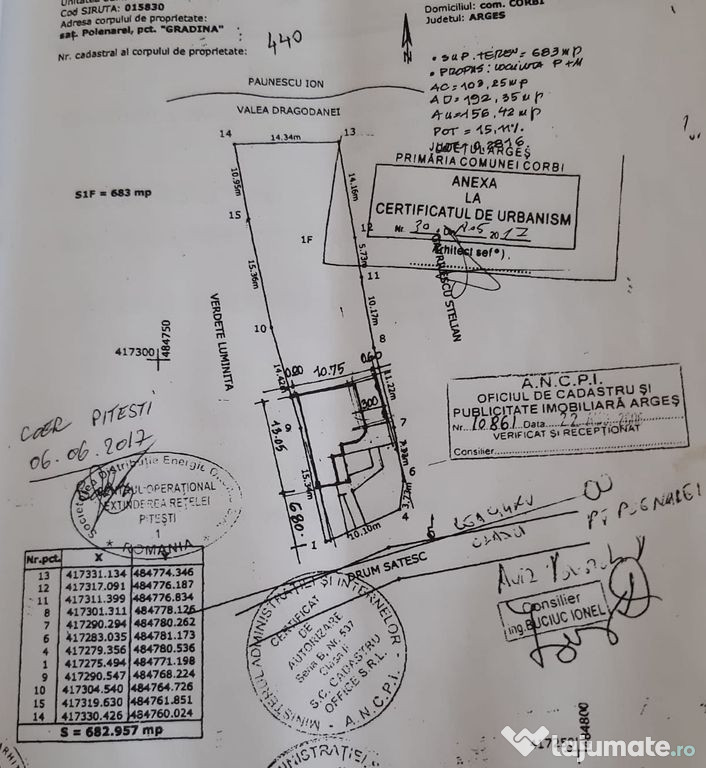 Cod SIRUTA: 015830
Adresa corpului de proprietate:
sat. Poienarei, pct. "GRADINA"
Nr. cadastral al corpului de proprietate: 440
Domiciliul: com. CORBI
Judetul: ARGES
• SUP. TEREN = 683 mp
• PROPUS: LOCUINTA P+M
AC = 103,25 mp
AD = 192,35 mp
Au = 156,42 mp
POT = 15,11%
JUDEŢUL ARGEŞ
PRIMĂRIA COMUNEI CORBI
ANEXA
LA
CERTIFICATUL DE URBANISM
Nr. 30 2017
Arhitect sef*).
PAUNESCU ION
VALEA DRAGODANEI
14
14.34m
13
10.95m
14.16m
S1F = 683 mp
15
1F
12
5.73m
11
15.36m
10.17m
10
8
VERDETE LUMINITA
STELIAN
417300
484750
0.60
10.75
11.22m
300
9
7
13.05
15.34m
6
3.77m
4
680
1
10.10m
DRUM SATESC
A.N.C.P.I.
OFICIUL DE CADASTRU ŞI
PUBLICITATE IMOBILIARĂ ARGEŞ
Nr. 10861 Data 22
VERIFICAT ŞI RECEPŢIONAT
Consilier
COER PITESTI
06.06.2017
Societatea Distributie Energie
OPERAŢIONAL
EXTINDEREA REŢELEI
PITEŞTI
1
* ROMANIA *
Consilier
ing. BUCIUC IONEL
Nr.pct. X
13 417331.134 484774.346
12 417317.091 484776.187
11 417311.399 484776.834
8 417301.311 484778.126
7 417290.294 484780.262
6 417283.035 484781.173
4 417279.356 484780.536
1 417275.494 484771.198
9 417290.547 484768.224
10 417304.540 484764.726
15 417319.630 484761.851
14 417330.426 484760.024
S = 682.957 mp
MINISTERUL ADMINISTRAŢIEI ŞI INTERNELOR
A.N.C.P.I.
CERTIFICAT
DE
AUTORIZARE
Seria B, Nr. 537
Clasa II
S.C. CADASTRU
OFFICE S.R.L.
484800
lajumate.ro